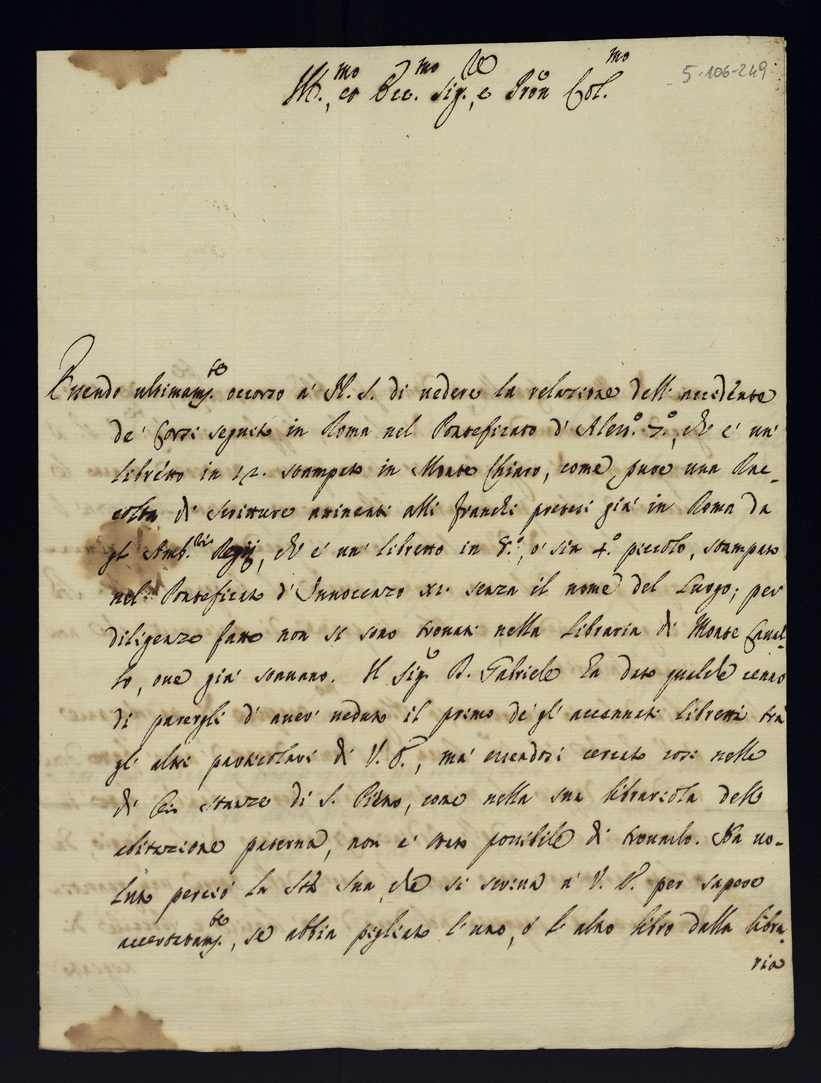 5-106-249
Ill.mo, et Ecc.mo Sig.re, e Pron Col.mo
Essendo ultimam.te occorso à N. S. di vedere la relazione dell'accidente
de' Corsi seguito in Roma nel Pontificato d'Aless.o 7.o, ch'è un
libretto in 12. stampato in Monte Chiaro, come pure una Rac-
colta di scritture attinenti alli franchi pretesi già in Roma da
gl'Amb.ri Regij, ch'è un libretto in 8.o, ò sia 4.o piccolo, stampato
nel Pontificato d'Innocenzo XI. senza il nome del Luogo; per
diligenze fatte non si sono trovati nella libraria di Monte Caval-
lo, ove già stavano. Il Sig.r D. Gabriele hà dato qualche cenno
di parergli d'aver veduto il primo de gl'accennati libretti trà
gl'altri particolari di V. E., mà essendosi cercato così nelle
di Lei stanze di S. Pietro, come nella sua librariola dell'
abitazione paterna, non è stato possibile di trovarlo. Hà vo-
luto perciò la S.tà Sua, che si scriva à V. E. per sapere
accertatam.te, se abbia pigliato l'uno, ò l'altro libro dalla libra-
ria